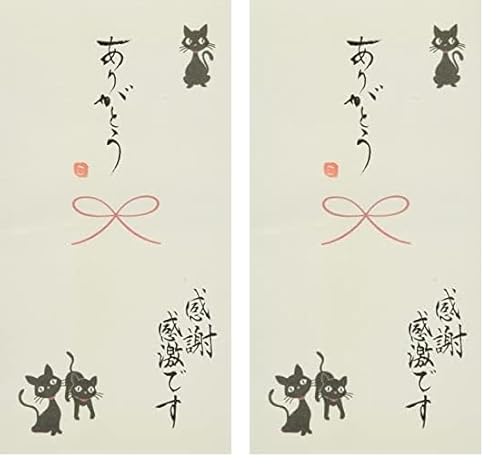 ありがとう
感謝
感激です
ありがとう
感謝
感激です